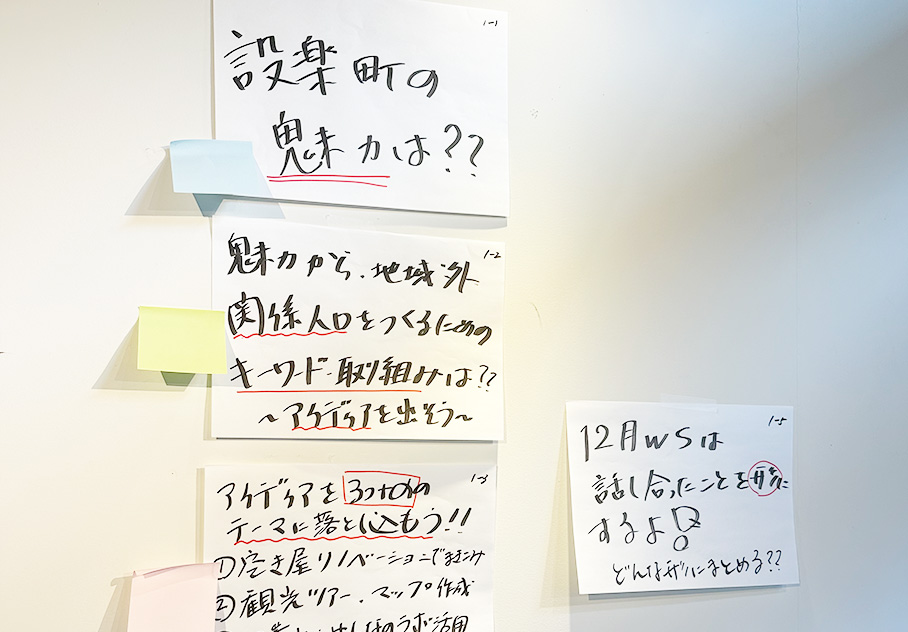 1-1
設楽町の
魅力は??
1-2
魅力から、地域外
関係人口をつくるための
キーワード・取り組みは??
〜アイディアを出そう〜
1-3
アイディアを3つの
テーマに落とし込もう!!
①空き屋リノベーションで
②観光ツアー、マップ作成
ラボ活用
1-5
12月WSは
話し合ったことを形に
するよ!?
どんな形にまとめる??